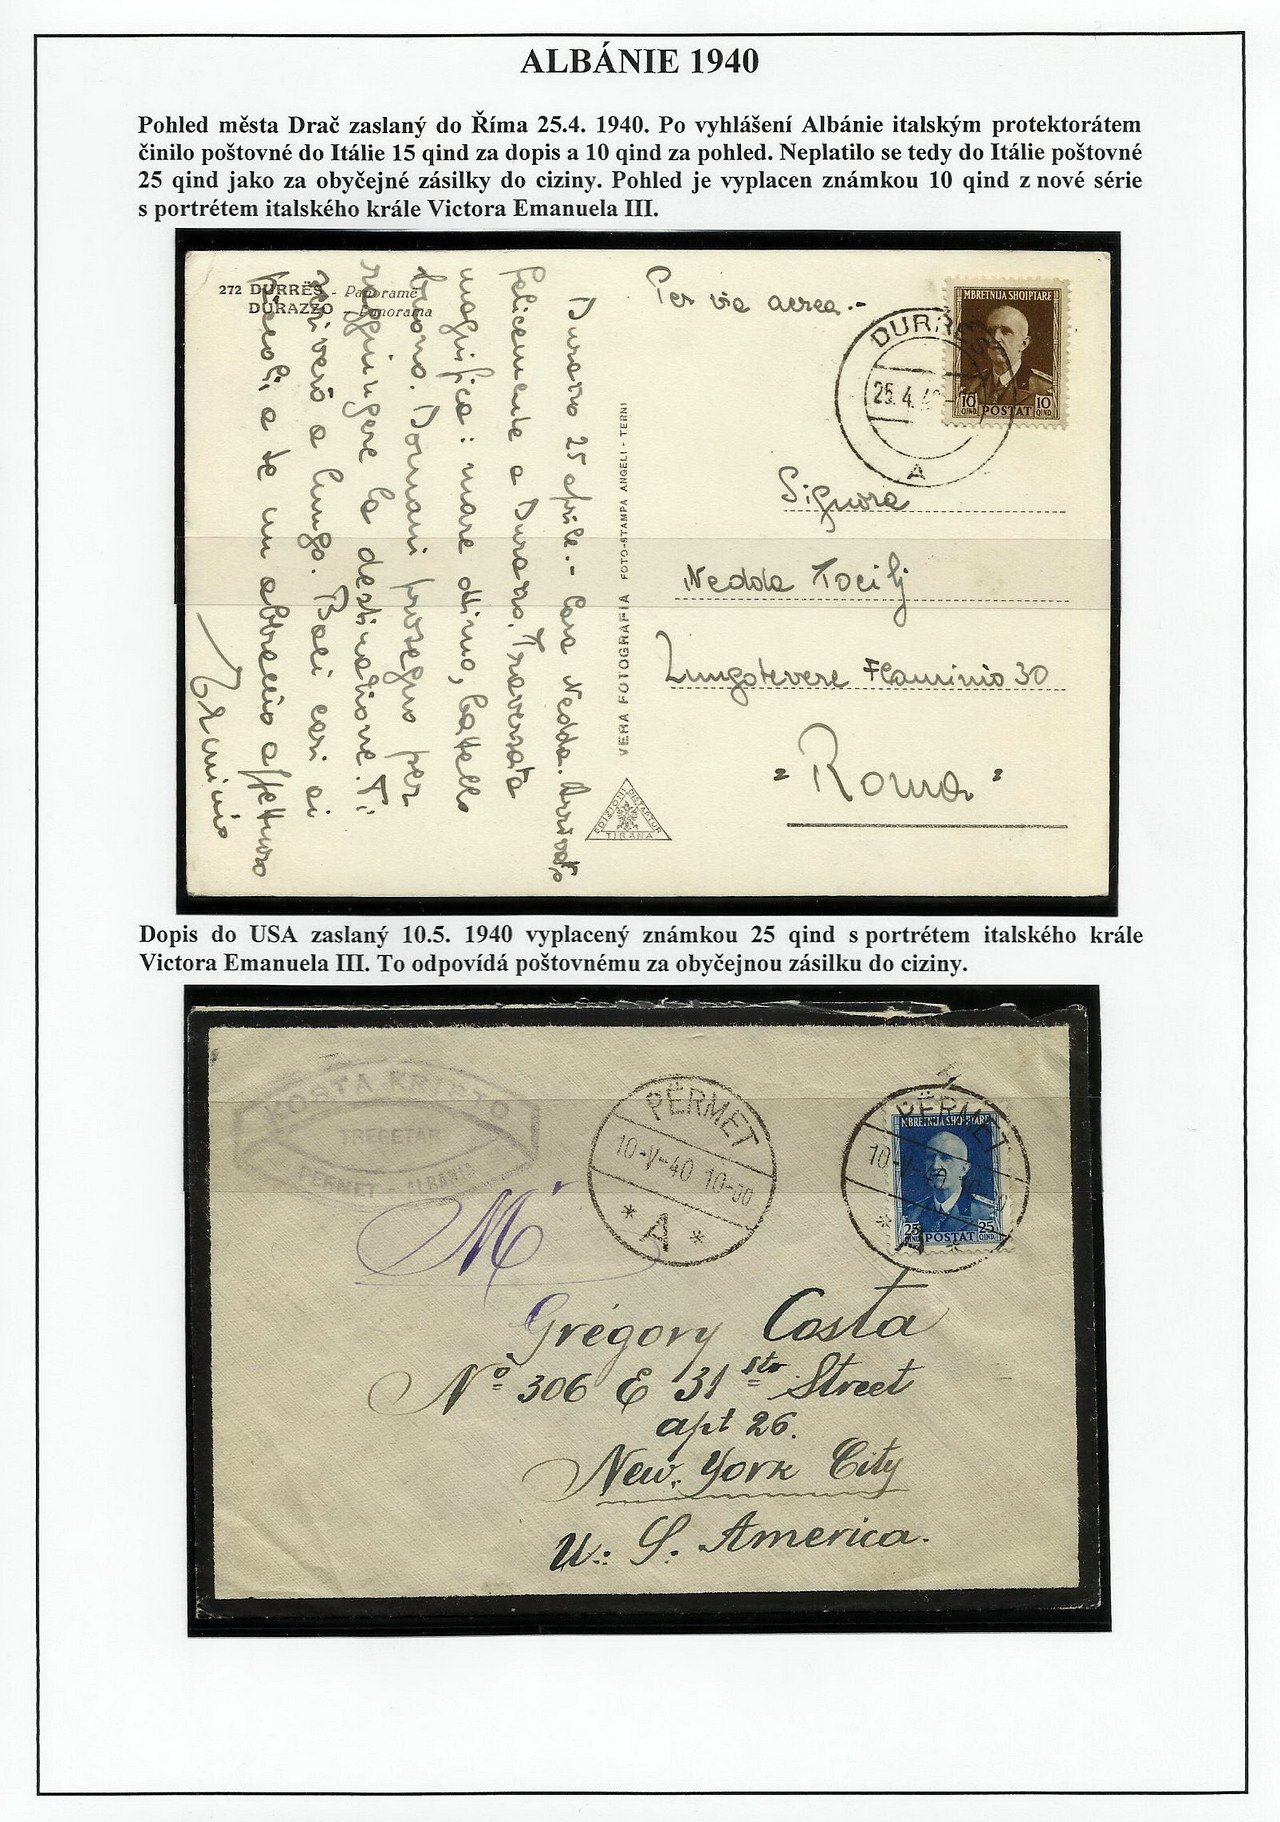 ALBÁNIE 1940
Pohled města Drač zaslaný do Říma 25.4. 1940. Po vyhlášení Albánie italským protektorátem
činilo poštovné do Itálie 15 qind za dopis a 10 qind za pohled. Neplatilo se tedy do Itálie poštovné
25 qind jako za obyčejné zásilky do ciziny. Pohled je vyplacen známkou 10 qind z nové série
s portrétem italského krále Victora Emanuela III.
272 DURRËS - Panoramë
DURAZZO - Panorama
Per via aerea.-
MBRETNIJA SHQIPTARE
10 QIND. POSTAT 10 QIND.
DURRËS
25.4.40
A
Durazzo 25 aprile.- Cara Nedda. Arrivato
felicemente a Durazzo. Traversata
magnifica: mare ottimo, battello
buono. Domani proseguo per
raggiungere la destinazione. Ti
scriverò a lungo. Baci cari ai
piccoli a te un abbraccio affettuoso
VERA FOTOGRAFIA FOTO-STAMPA ANGELI - TERNI
EDIZIONI DISTAPTUR
TIRANA
Signora
Nedda Tocilj
Lungotevere Flaminio 30
"Roma"
Dopis do USA zaslaný 10.5. 1940 vyplacený známkou 25 qind s portrétem italského krále
Victora Emanuela III. To odpovídá poštovnému za obyčejnou zásilku do ciziny.
KRISTO
TREGETAR
PERMET - ALBANIA
PËRMET
10-V-40 10-00
* A *
PËRMET
10-V-40
* A *
MBRETNIJA SHQIPTARE
25 QIND. POSTAT 25 QIND.
M
Grégory Costa
Nº 306 E 31 str Street
apt 26.
New. York City
U: S: America.